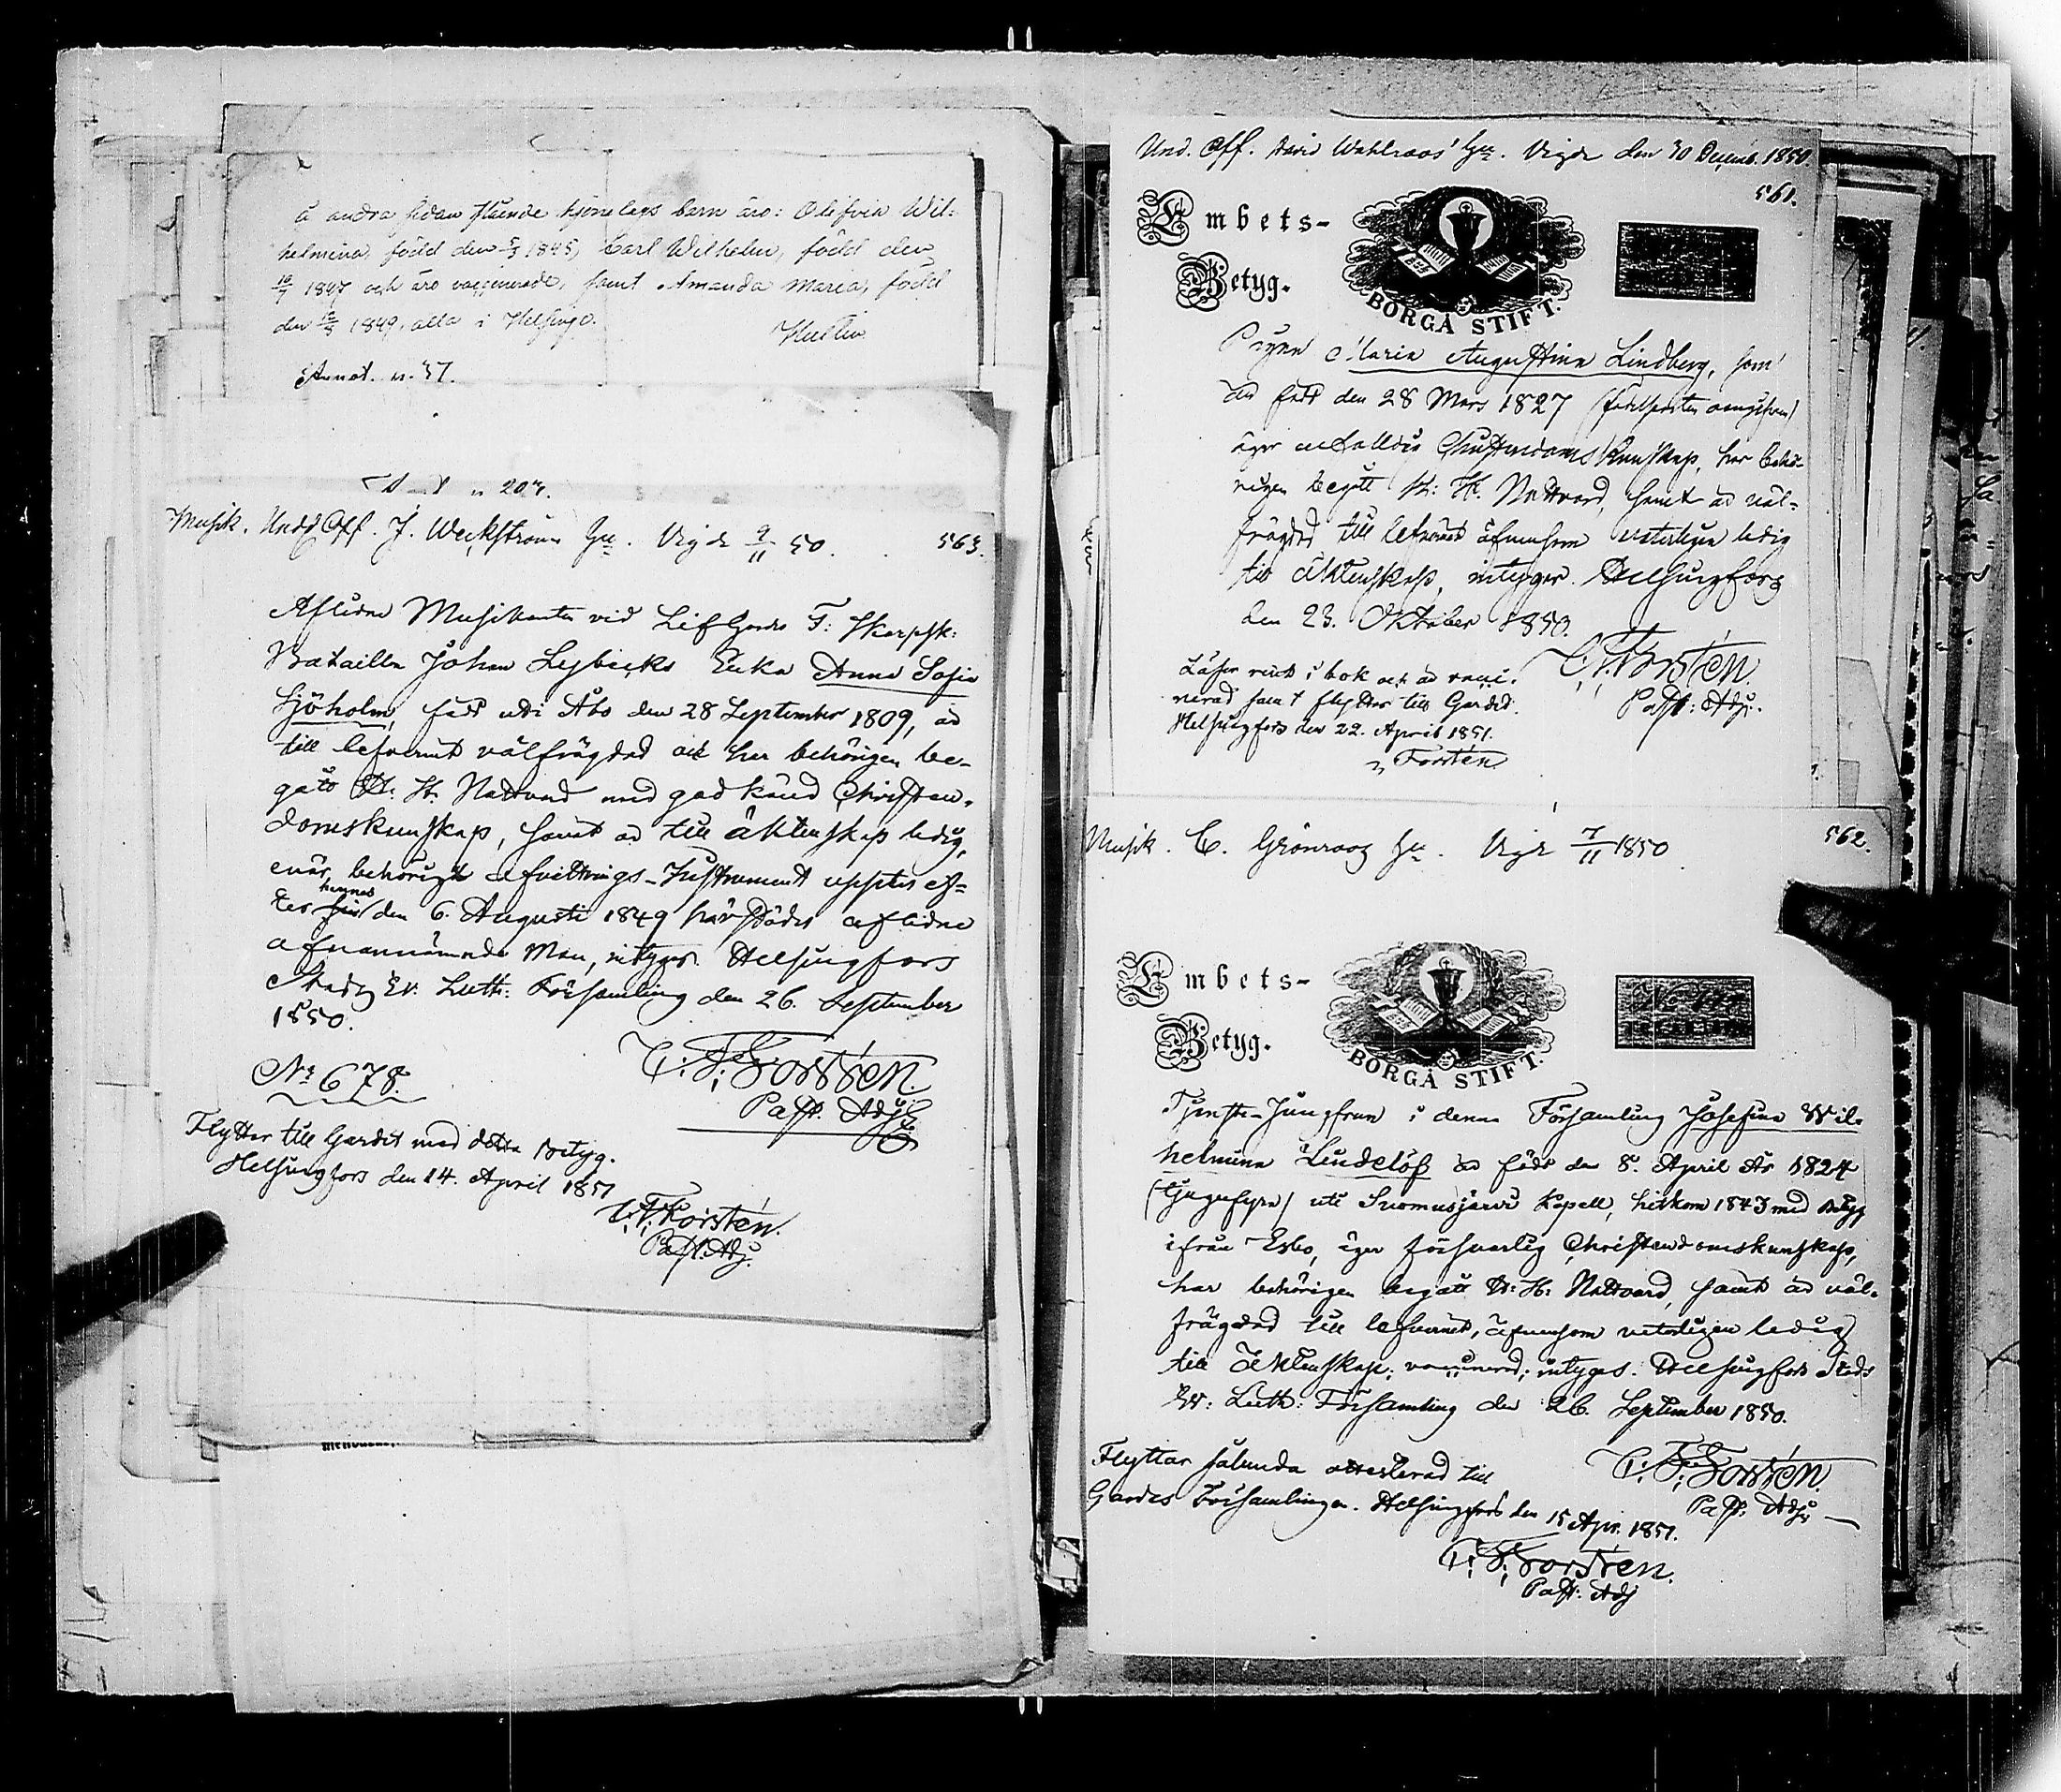 å andra sidan stående hjonelags barn äro: Olifvia Wil-
helmina, född den 5/3 1845, Carl Wilhelm, född den
1847 och äro vaccinerade, samt Amanda Maria, född
den 1849, alla i Helsinge.
Annot. n. 37.
n 207.
Musik. Und. Off. J. Weckström Hu. Vigde 9/11 50. 563.
Aflidne Musikanten vid Lif Gardes F: Skarpsk:
Bataillon Johan Leybecks Enka Anna Sofia
Sjöholm, född uti Åbo den 28 September 1809, är
till lefvernet välfrägdad och har behörigen be-
gått H. H. Nattvard med god känd Christen-
domskunskap, samt är till äktenskap ledig,
enär behörigt afvittrings-Instrument upptes ef-
ter sin hennes den 6. Augusti 1849 härstädes aflidne
ofvannämnde Man, intygar. Helsingfors
Stads Ev. Luth: Församling den 26. September
1850.
C. F. Forstén.
Past. Adj.
No 678.
Flyttar till Gardet med detta betyg.
Helsingfors den 14. April 1851
C. F. Forstén.
Past. Adj.
Und. Off. David Wahlroos' Hu. Vigde den 30 Decemb. 1850.
561.
Embets-
Betyg.
BORGÅ STIFT.
Pigan Maria Augustina Lindberg, som
är född den 28 Mars 1827
äger Christendoms kunskap, har behö-
rigen begått H. H. Nattvard, samt är väl-
frägdad till lefvernet äfvensom veterligen ledig
till äktenskap, intygar. Helsingfors
den 23. Oktober 1850.
C. F. Forstén.
Past: Adj.
Läser rent i bok och är vacci-
nerad samt flyttar till Gardet.
Helsingfors den 22. April 1851.
Forstén
Musik. C. Grönroos Hu. Vigde 7/11 1850 562.
Embets-
Betyg.
BORGÅ STIFT.
Tjenste-Jungfrun i denna Församling Josefina Wil-
helmina Lindelöf är född den 8. April År 1824
(tjugufyra) uti Suomusjärvi Kapell, hitkom 1843 med betyg
ifrån Esbo, äger försvarlig Christendomskunskap,
har behörigen begått H. H. Nattvard, samt är väl-
frägdad till lefvernet, äfvensom veterligen ledig
till Äktenskap; vaccinerad; intygas. Helsingfors Stads
Ev: Luth: Församling den 26. September 1850.
C. F. Forstén.
Past: Adj.
Flyttar sålunda attesterad till
Gardes Församlingen. Helsingfors den 15 Apr. 1851.
C. F. Forstén.
Past: Adj